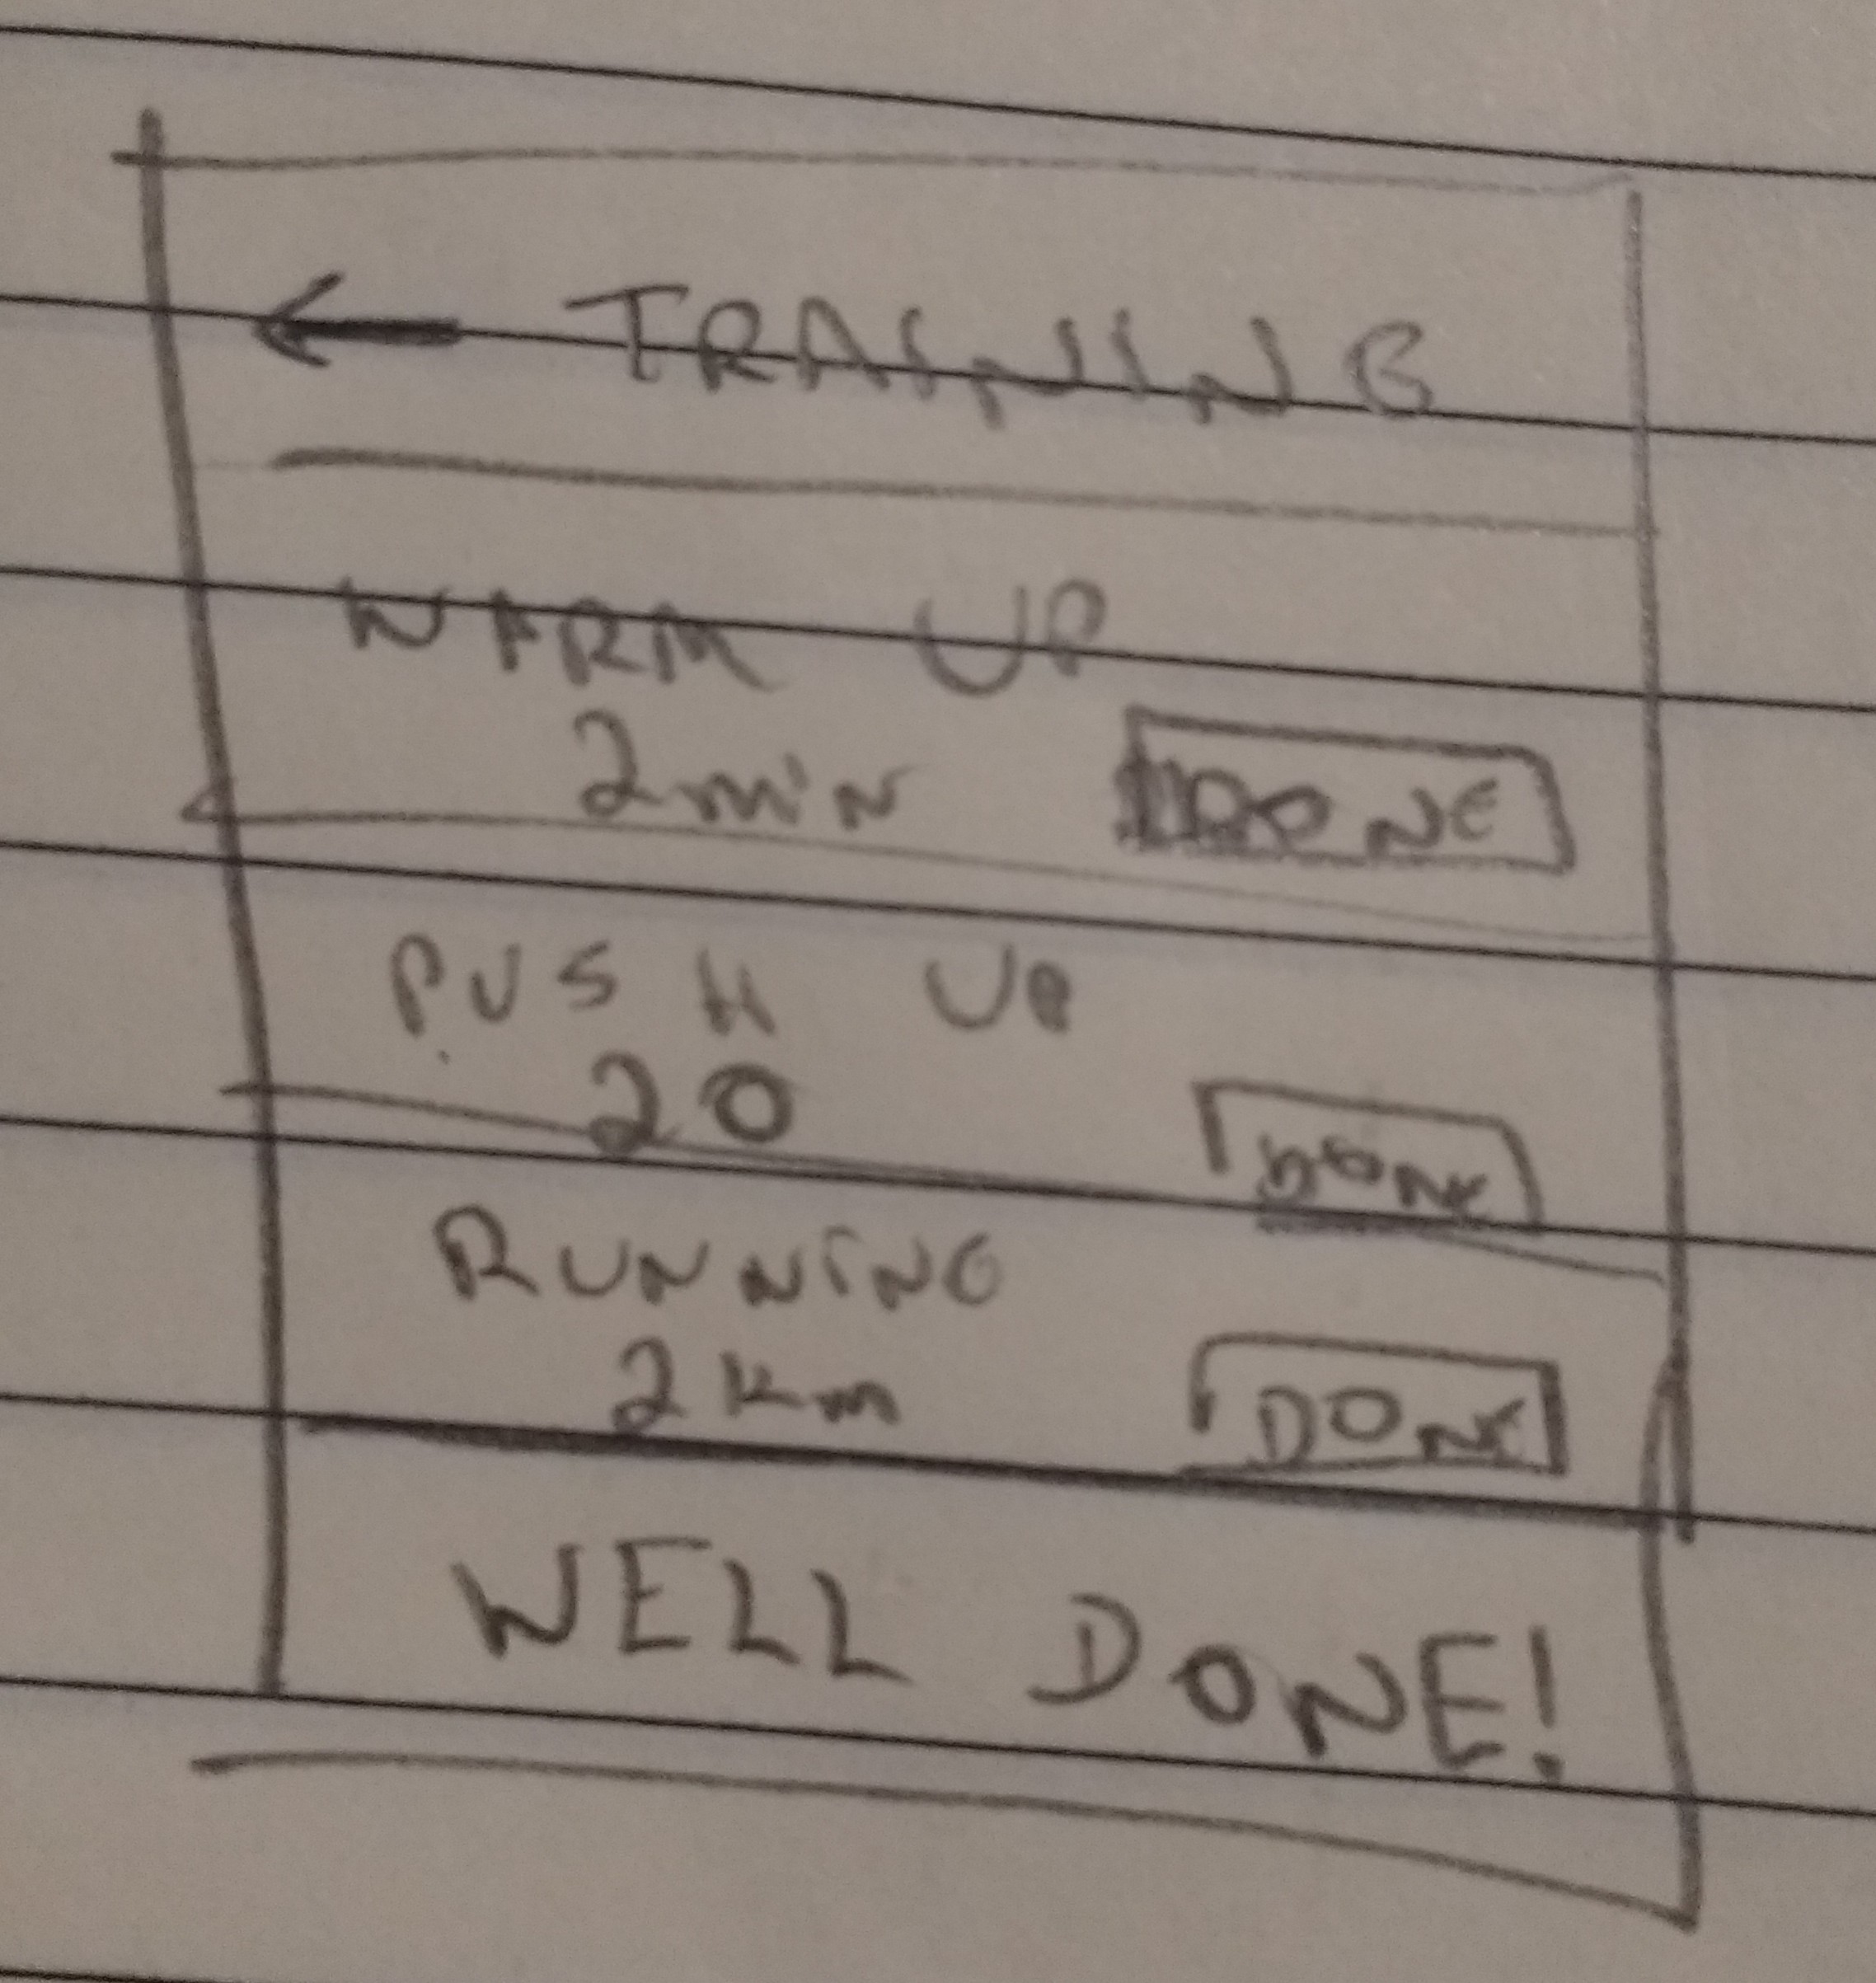 ← TRAINING
WARM UP
2min DONE
PUSH UP
20 DONE
RUNNING
2Km DONE
WELL DONE!